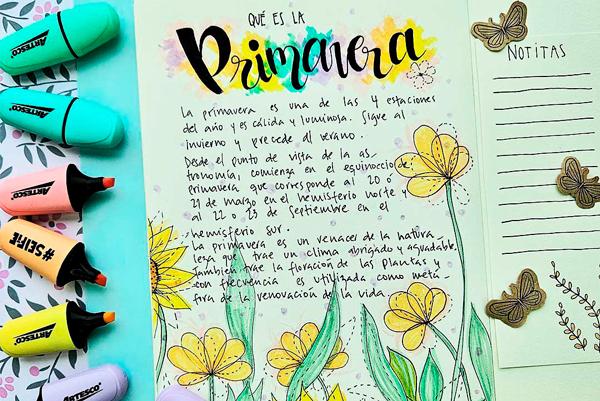 QUÉ ES LA
Primavera
La primavera es una de las 4 estaciones
del año y es cálida y luminosa. Sigue al
invierno y precede al verano.
Desde el punto de vista de la as_
tronomía, comienza en el equinoccio de
primavera que corresponde al 20 o
21 de marzo en el hemisferio norte y
al 22 o 23 de Septiembre en el
hemisferio sur.
La primavera es un renacer de la natura_
leza que trae un clima abrigado y agradable,
también trae la floración de las plantas y
con frecuencia es utilizada como metá_
fora de la renovación de la vida
NOTITAS
ARTESCO
ARTESCO
ARTESCO
#SEIRE
ARTESCO
ARTESCO